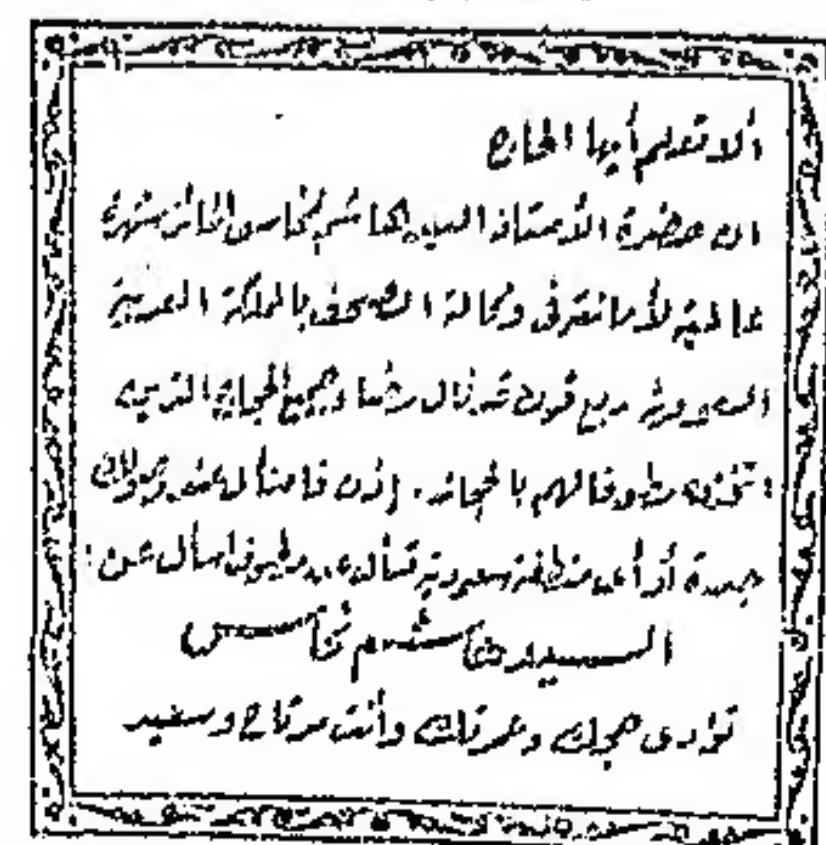 ألا تعلم أيها الحاج
ان حضرة الأستاذ السيد هاشم نحاس الحائز شهرة
عالمية لأمانته في وكالة الصحف بالمملكة العربية
السعودية ربع قرن قد نال رضا وجميع الحجاج الذين
اتخذوه مطوفا لهم بالحجاز. إذن فاسأل عند وصولك
جدة أو أي منطقة سعودية تسأل عن مطوف اسأل عن:
السيد هاشم نحاس
تؤدى حجك وعمرتك وأنت مرتاح وسعيد